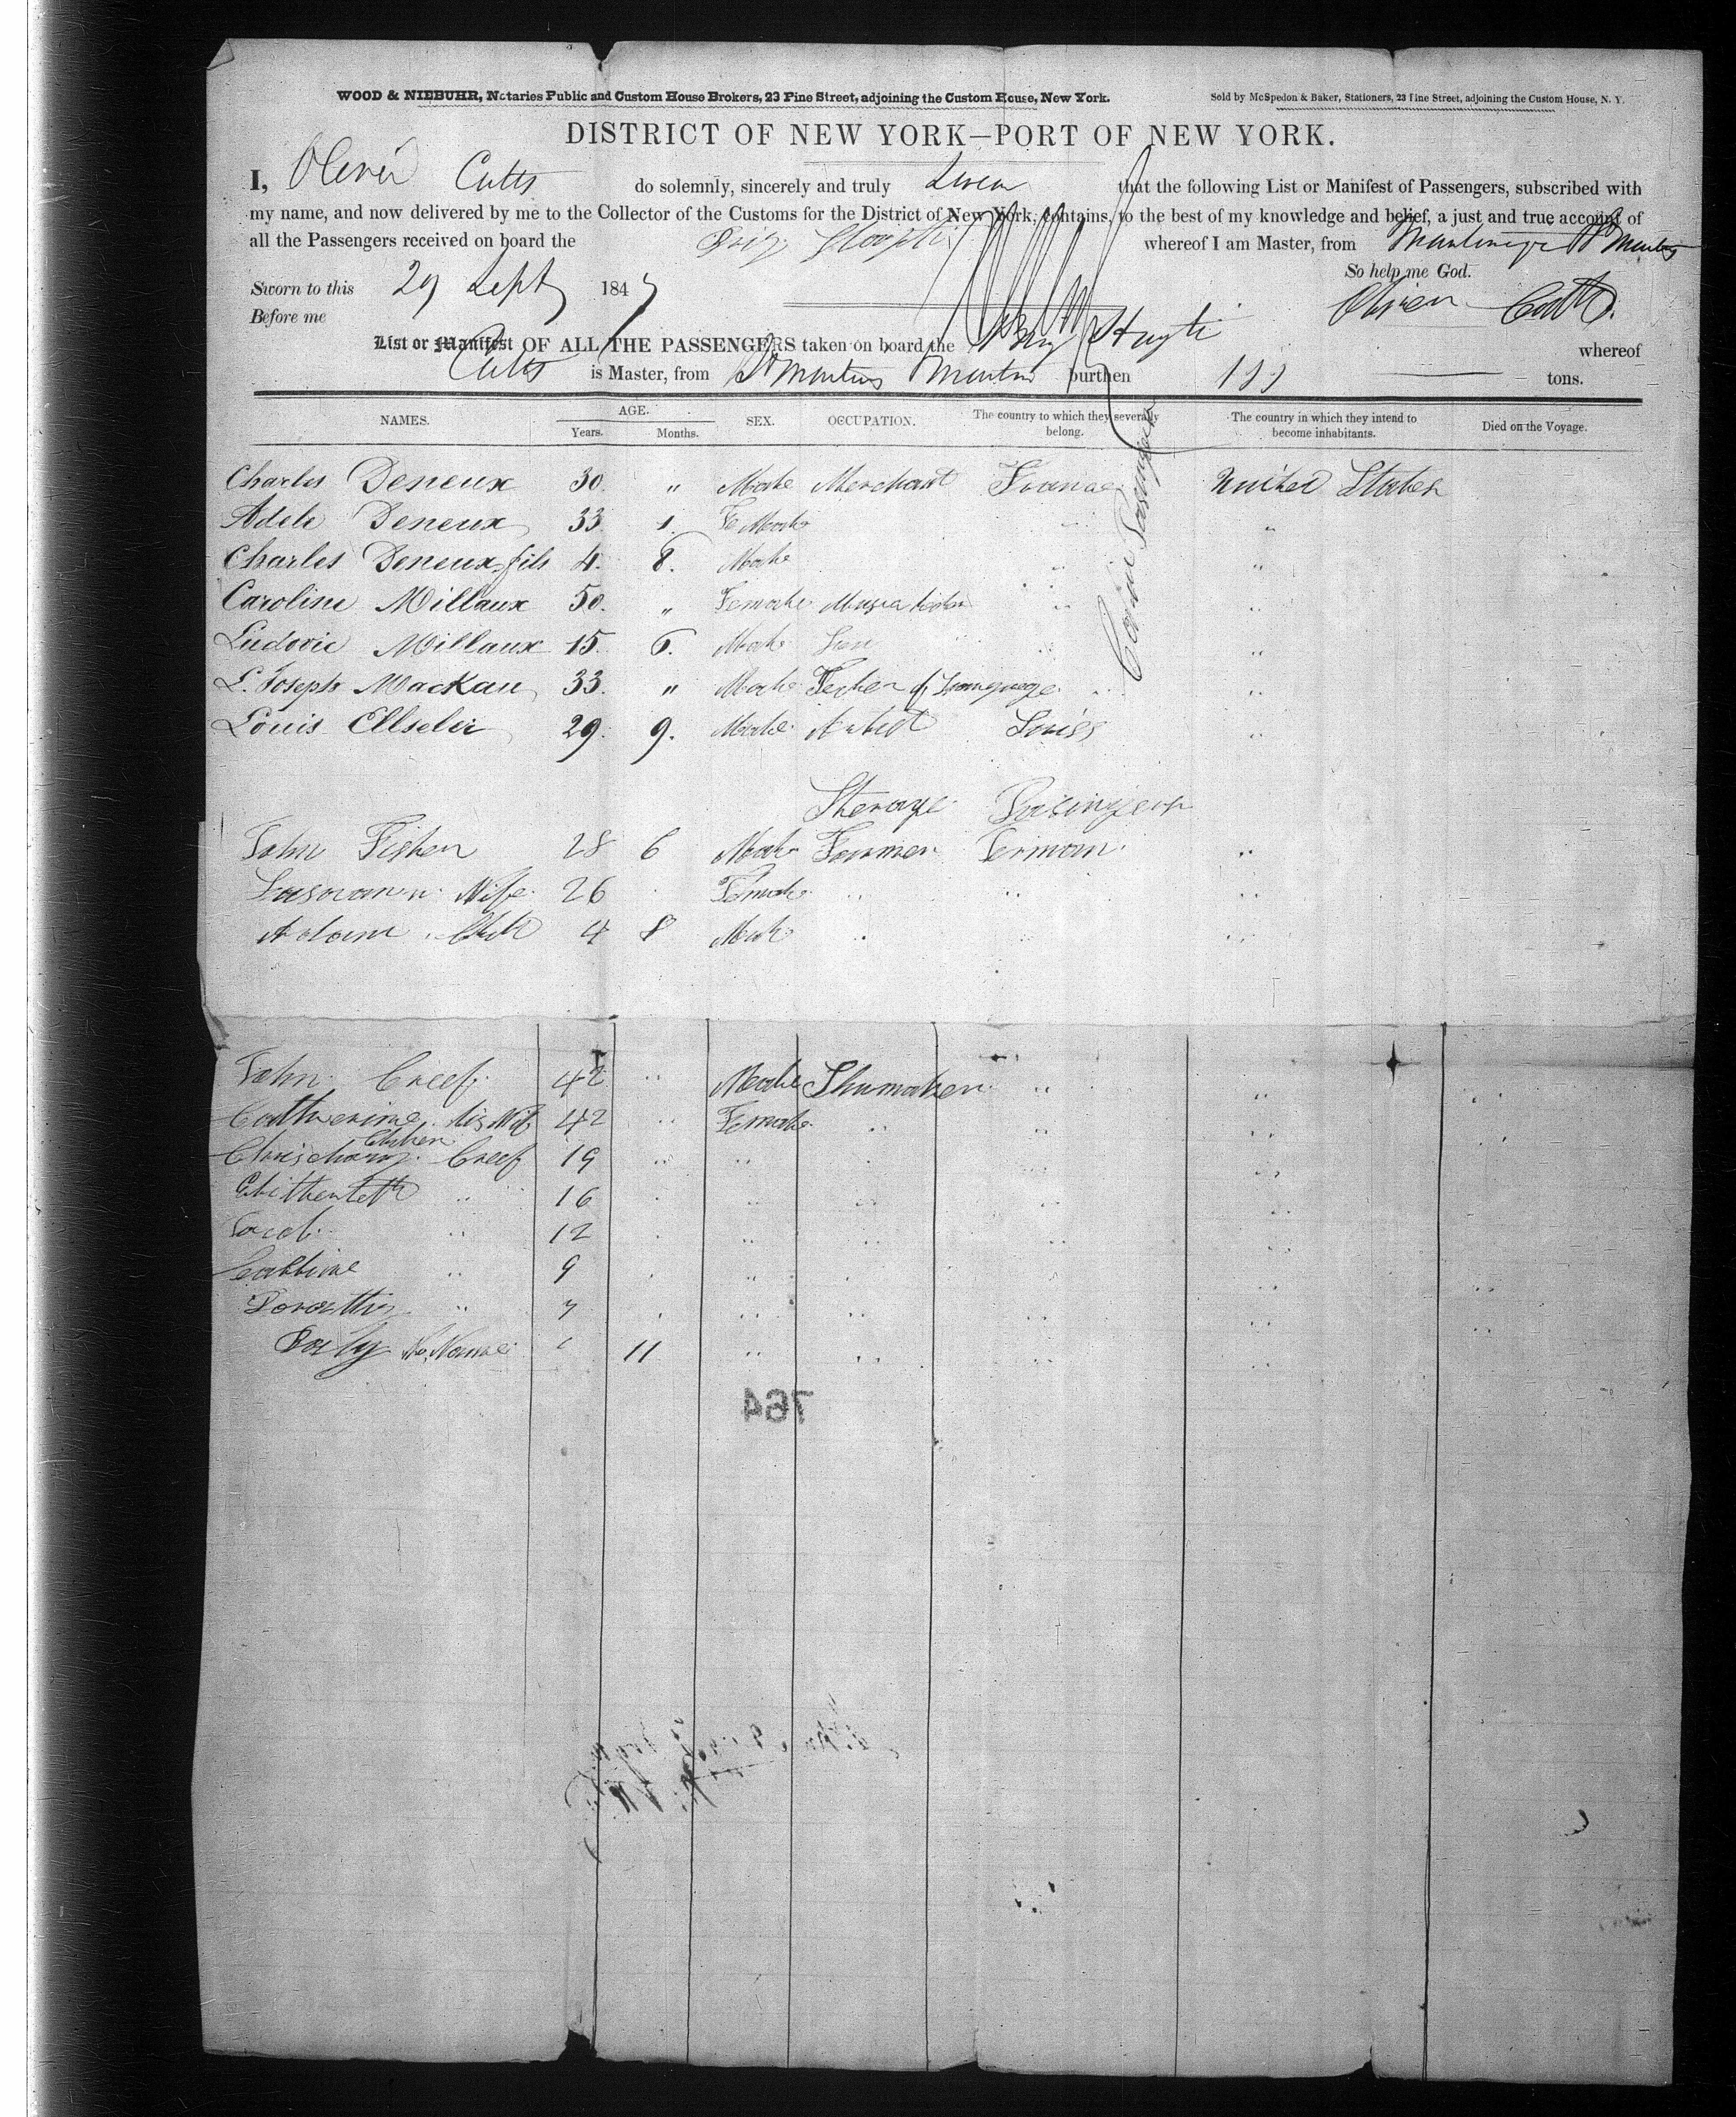 WOOD & NIEBUHR, Notaries Public and Custom House Brokers, 23 Pine Street, adjoining the Custom House, New York.
Sold by McSpedon & Baker, Stationers, 23 Pine Street, adjoining the Custom House, N. Y.
DISTRICT OF NEW YORK—PORT OF NEW YORK.
I, Oliver Cutts do solemnly, sincerely and truly swear that the following List or Manifest of Passengers, subscribed with
my name, and now delivered by me to the Collector of the Customs for the District of New York, contains, to the best of my knowledge and belief, a just and true account of
all the Passengers received on board the Brig whereof I am Master, from
So help me God.
Sworn to this 29 Sept 1847
Before me
Oliver Cutts.
List or Manifest OF ALL THE PASSENGERS taken on board the Brig whereof
Cutts is Master, from St Martins burthen tons.
NAMES. AGE. Years. Months. SEX. OCCUPATION. The country to which they severally belong. The country in which they intend to become inhabitants. Died on the Voyage.
Charles Deneux 30. " Male Merchant France United States
Adele Deneux 33 1. Femal "
Charles Deneux fils 4. 8. Male " "
Caroline Millaux 50. " Female " "
Ludovic Millaux 15. 6. Male " "
L. Joseph Mackau 33. " Male Techer of Languege " "
Louis Ellseler 29. 9. Male Artist Swiss "
Cabin Passengers
Sterage Passingers
John Fisher 28 6 Male Farmer German "
Susanann Wife 26 Female " " "
Adam Child 4 8 Male " " "
John Creef 42 " Male Shumaker " "
Catherine his Wife 42 " Female " " "
Children
Creef 19 " " " " "
" 16 " " " "
Jacob " 12 " " " "
" 9 " " "
Dorothy " 7 " " " "
Baby No Name 11 " " " "
764